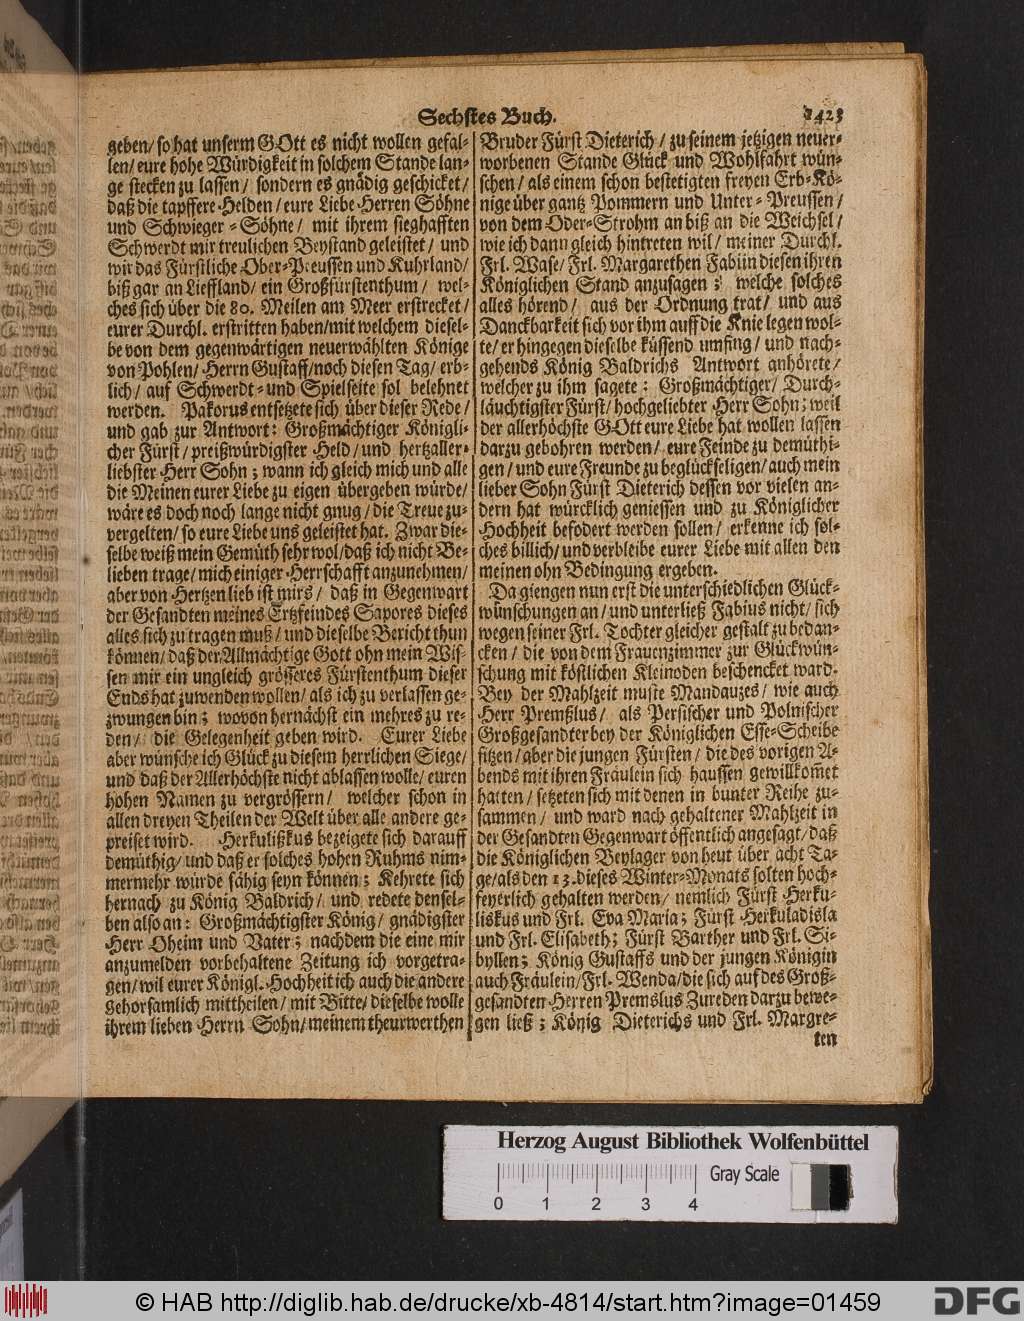 Sechstes Buch.
1423
geben/ so hat unserm GOtt es nicht wollen gefal-
len/ eure hohe Würdigkeit in solchem Stande lan-
ge stecken zu lassen/ sondern es gnädig geschicket/
daß die tapffere Helden/ eure Liebe Herren Söhne
und Schwieger-Söhne/ mit ihrem sieghafften
Schwerdt mir treulichen Beystand geleistet/ und
wir das Fürstliche Ober-Preussen und Kuhrland/
biß gar an Lieffland/ ein Großfürstenthum/ wel-
ches sich über die 80. Meilen am Meer erstrecket/
eurer Durchl. erstritten haben/ mit welchem diesel-
be von dem gegenwärtigen neuerwählten Könige
von Pohlen/ Herrn Gustaff/ noch diesen Tag/ erb-
lich/ auf Schwerdt- und Spielseite sol belehnet
werden. Pakorus entsetzete sich über dieser Rede/
und gab zur Antwort: Großmächtiger Königli-
cher Fürst/ preißwürdigster Held/ und hertzaller-
liebster Herr Sohn; wann ich gleich mich und alle
die Meinen eurer Liebe zu eigen übergeben würde/
wäre es doch noch lange nicht gnug/ die Treue zu-
vergelten/ so eure Liebe uns geleistet hat. Zwar die-
selbe weiß mein Gemüth sehr wol/ daß ich nicht Be-
lieben trage/ mich einiger Herrschafft anzunehmen/
aber von Hertzen lieb ist mirs/ daß in Gegenwart
der Gesandten meines Ertzfeindes Sapores dieses
alles sich zu tragen muß/ und dieselbe Bericht thun
können/ daß der Allmächtige Gott ohn mein Wis-
sen mir ein ungleich grösseres Fürstenthum dieser
Ends hat zuwenden wollen/ als ich zu verlassen ge-
zwungen bin; wovon hernächst ein mehres zu re-
den/ die Gelegenheit geben wird. Eurer Liebe
aber wünsche ich Glück zu diesem herrlichen Siege/
und daß der Allerhöchste nicht ablassen wolle/ euren
hohen Namen zu vergrössern/ welcher schon in
allen dreyen Theilen der Welt über alle andere ge-
preiset wird. Herkulißkus bezeigete sich darauff
demüthig/ und daß er solches hohen Ruhms nim-
mermehr würde fähig seyn können; Kehrete sich
hernach zu König Baldrich/ und redete densel-
ben also an: Großmächtigster König/ gnädigster
Herr Oheim und Vater; nachdem die eine mir
anzumelden vorbehaltene Zeitung ich vorgetra-
gen/ wil eurer Königl. Hochheit ich auch die andere
gehorsamlich mittheilen/ mit Bitte/ dieselbe wolle
ihrem lieben Herrn Sohn/ meinem theurwerthen
Bruder Fürst Dieterich/ zu seinem jetzigen neuer-
worbenen Stande Glück und Wohlfahrt wün-
schen/ als einem schon bestetigten freyen Erb-Kö-
nige über gantz Pommern und Unter-Preussen/
von dem Oder-Strohm an biß an die Weichsel/
wie ich dann gleich hintreten wil/ meiner Durchl.
Frl. Wase/ Frl. Margarethen Fabiin diesen ihren
Königlichen Stand anzusagen; welche solches
alles hörend/ aus der Ordnung trat/ und aus
Danckbarkeit sich vor ihm auff die Knie legen wol-
te/ er hingegen dieselbe küssend umfing/ und nach-
gehends König Baldrichs Antwort anhörete/
welcher zu ihm sagete: Großmächtiger/ Durch-
läuchtigster Fürst/ hochgeliebter Herr Sohn; weil
der allerhöchste GOtt eure Liebe hat wollen lassen
darzu gebohren werden/ eure Feinde zu demüthi-
gen/ und eure Freunde zu beglückseligen/ auch mein
lieber Sohn Fürst Dieterich dessen vor vielen an-
dern hat würcklich geniessen und zu Königlicher
Hochheit befodert werden sollen/ erkenne ich sol-
ches billich/ und verbleibe eurer Liebe mit allen den
meinen ohn Bedingung ergeben.
Da giengen nun erst die unterschiedlichen Glück-
wünschungen an/ und unterließ Fabius nicht/ sich
wegen seiner Frl. Tochter gleicher gestalt zu bedan-
cken/ die von dem Frauenzimmer zur Glückwün-
schung mit köstlichen Kleinoden beschencket ward.
Bey der Mahlzeit muste Mandauzes/ wie auch
Herr Premßlus/ als Persischer und Polnischer
Großgesandter bey der Königlichen Esse-Scheibe
sitzen/ aber die jungen Fürsten/ die des vorigen A-
bends mit ihren Fräulein sich haussen gewillkom̃et
hatten/ setzeten sich mit denen in bunter Reihe zu-
sammen/ und ward nach gehaltener Mahlzeit in
der Gesandten Gegenwart öffentlich angesagt/ daß
die Königlichen Beylager von heut über acht Ta-
ge/ als den 13. dieses Winter-Monats solten hoch-
feyerlich gehalten werden/ nemlich Fürst Herku-
liskus und Frl. Eva Maria; Fürst Herkuladisla
und Frl. Elisabeth; Fürst Barther und Frl. Si-
byllen; König Gustaffs und der jungen Königin
auch Fräulein/ Frl. Wenda/ die sich auf des Groß-
gesandten Herren Premslus Zureden darzu bewe-
gen ließ; König Dieterichs und Frl. Margre-
ten
Herzog August Bibliothek Wolfenbüttel
Gray Scale
0 1 2 3 4
© HAB http://diglib.hab.de/drucke/xb-4814/start.htm?image=01459
DFG